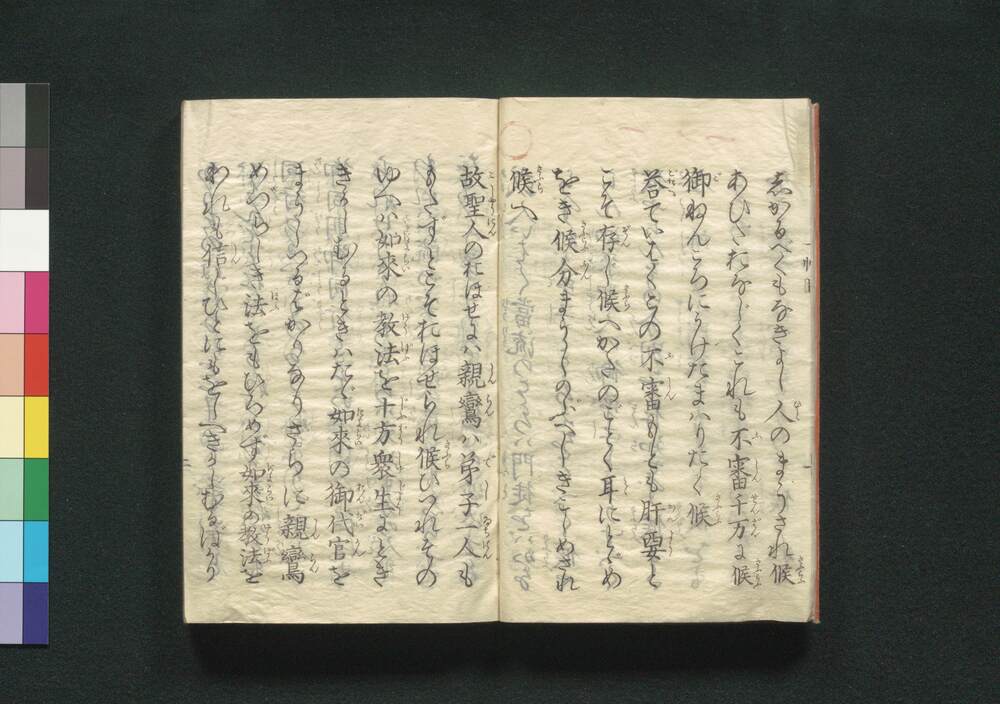 しかるべくもなきよし人のまうされ候
あひだおなじくこれも不審千万に候
御ねんごろにうけたまはりたく候
答ていはくこの不審もとも肝要と
こそ存じ候へかたのごとく耳にとゞめ
をき候分まうしのぶべしきこしめされ
候へ
故聖人のおほせには親鸞は弟子一人も
もたずとこそおほせられ候ひつれその
ゆへは如來の教法を十方衆生にとき
きかしむるときはたゞ如來の御代官を
まうしつるばかりなりさらに親鸞
めづらしき法をもひろめず如來の教法を
われも信じひとにもをしへきかしむるばかり